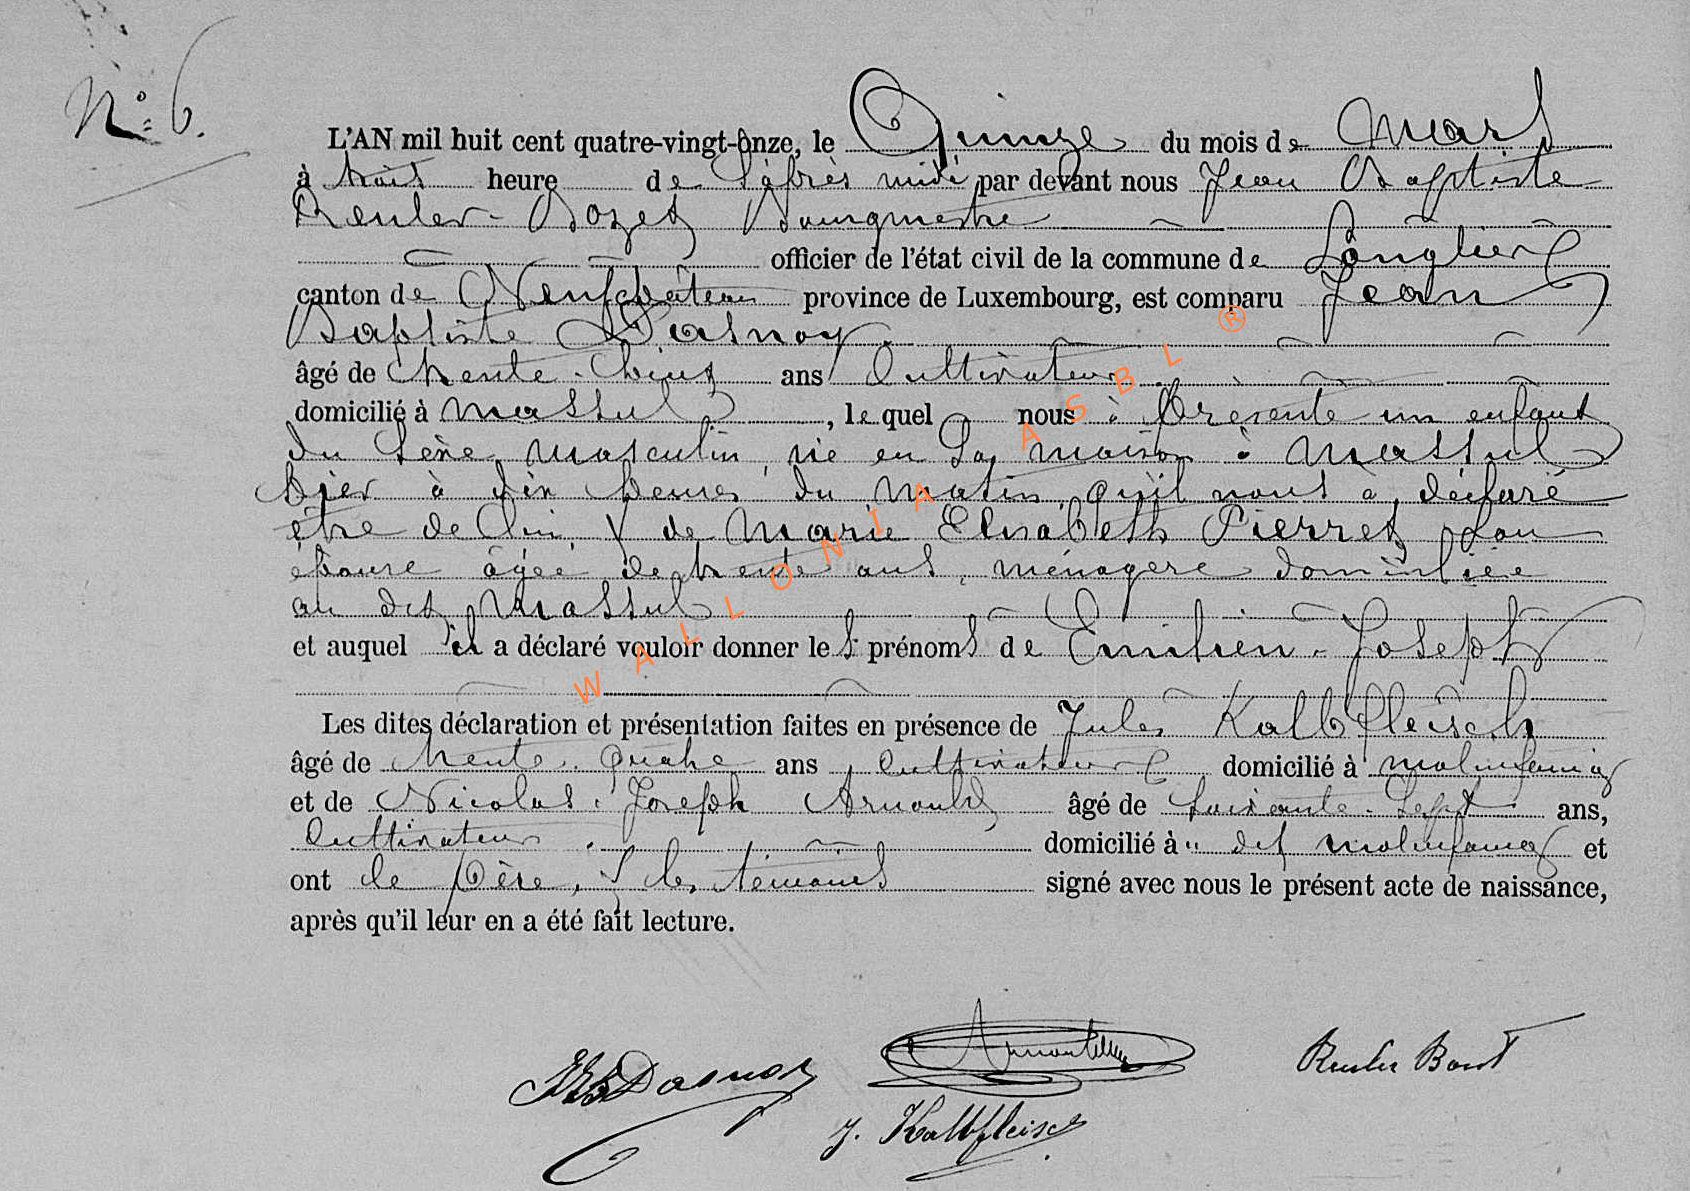 N° 6.
L'AN mil huit cent quatre-vingt-onze, le Quinze du mois de Mars
à trois heure de l'après midi par devant nous Jean Baptiste
Reuler-Bozet Bourgmestre
officier de l'état civil de la commune de Longlier
canton de Neufchâteau province de Luxembourg, est comparu Jean
Baptiste Dasnoy
âgé de trente-cinq ans Cultivateur
domicilié à Massul, lequel nous à présenté un enfant
du sèxe masculin, né en sa maison à Massul
hier à dix heures du matin, qu'il nous à déclaré
être de lui & de Marie Elisabeth Pierret son
épouse âgée de trente ans, ménagère domiciliée
au dit Massul
et auquel il a déclaré vouloir donner les prénoms de Emilien-Joseph
Les dites déclaration et présentation faites en présence de Jules Kalbfleisch
âgé de trente-quatre ans, Cultivateur domicilié à Molinfaing
et de Nicolas-Joseph Arnould âgé de soixante-sept ans,
Cultivateur domicilié à dit Molinfaing et
ont le père, & les témoins signé avec nous le présent acte de naissance,
après qu'il leur en a été fait lecture.
JBDasnoy Arnould Reuler Bozet
J. Kalbfleisch
WALLONIA ASBL ®